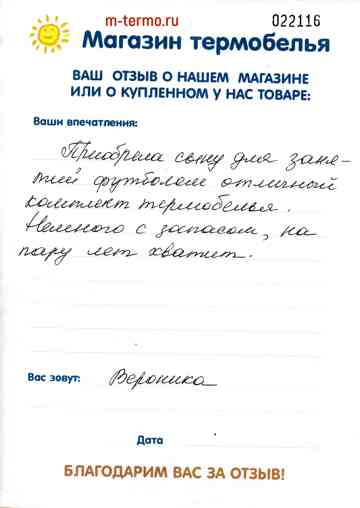 m-termo.ru 022116
Магазин термобелья
ВАШ ОТЗЫВ О НАШЕМ МАГАЗИНЕ
ИЛИ О КУПЛЕННОМ У НАС ТОВАРЕ:
Ваши впечатления:
Приобрела сыну для заня-
тий футболом отличный
комплект термобелья.
Немного с запасом, на
пару лет хватит.
Вас зовут: Вероника
Дата
БЛАГОДАРИМ ВАС ЗА ОТЗЫВ!